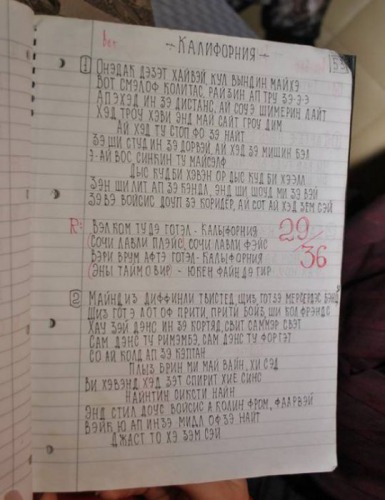 - КАЛИФОРНИЯ -
1 ОНЭДАК ДЭЗЭТ ХАЙВЭЙ, КУЛ ВЫНДИН МАЙХЭ
ВОТ СМЭЛОФ КОЛИТАС, РАЙЗИН АП ТРУ ЗЭ-Э-Э
АПЭХЭД ИН ЗЭ ДИСТАНС, АЙ СОУЭ ШИМЕРИН ЛАЙТ
ХЭД ГРОУ ХЭВИ, ЭНД МАЙ САЙТ ГРОУ ДИМ
АЙ ХЭД ТУ СТОП ФО ЗЭ НАЙТ
ЗЭ ШИ СТУД ИН ЗЭ ДОРВЭЙ, АЙ ХЭД ЗЭ МИШИН БЭЛ
Э-АЙ ВОС, СИНКИН ТУ МАЙСЭЛФ
ДЫС КУД БИ ХЭВЕН ОР ДЫС КУД БИ ХЭЭЛ
ЗЭН ШИ ЛИТ АП ЗЭ КЭНДЛ, ЭНД ШИ ШОУД МИ ЗЭ ВЭЙ
ЗЭ ВЭ ВОЙСИС ДОУП ЗЭ КОРИДЕР, АЙ СОТ АЙ ХЭД ЗЕМ СЭЙ
R: ВЭЛКОМ ТУ ДЭ ГОТЭЛ - КАЛЫФОРНИЯ
(СОЧИ ЛАВЛИ ПЛЭЙС), СОЧИ ЛАВЛИ ФЭЙС 29
ВЭРИ ВРУМ АФТЭ ГОТЭЛ - КАЛЫФОРНИЯ 36
(ЭНЫ ТАЙМ О ВИР) - ЮКЕН ФАЙНД ЭТ ГИР
2 МАЙНД ИЗ ДИФФИНЛИ ТВИСТЕД, ШИЗ ГОТ ЗЭ МЕРСЕРДЭС БЭНЦ
ШИЗ ГОТ Э ЛОТ ОФ ПРИТИ, ПРИТИ БОЙЗ, ШИ КОЛ ФРЭНДС
ХАУ ЗЭЙ ДЭНС ИН ЗЭ КОРТЯД, СВИТ САММЭР СВЭТ
САМ ДЭНС ТУ РИМЭМБЭ, САМ ДЭНС ТУ ФОРГЭТ
СО АЙ КОЛД АП ЗЭ КЭПТАН
ПЛЫЗ БРИН МИ МАЙ ВАЙН, ХИ СЭД
ВИ ХЭВЭНД ХЭД ЗЭТ СПИРИТ ХИЕ СИНС
НАЙНТИН СИКСТИ НАЙН
ЭНД СТИЛ ДОУС ВОЙСИС А КОЛИН ФРОМ, ФААРВЭЙ
ВЭЙК Ю АП ИН ЗЭ МИДЛ ОФ ЗЭ НАЙТ
ДЖАСТ ТО ХЭ ЗЭМ СЭЙ